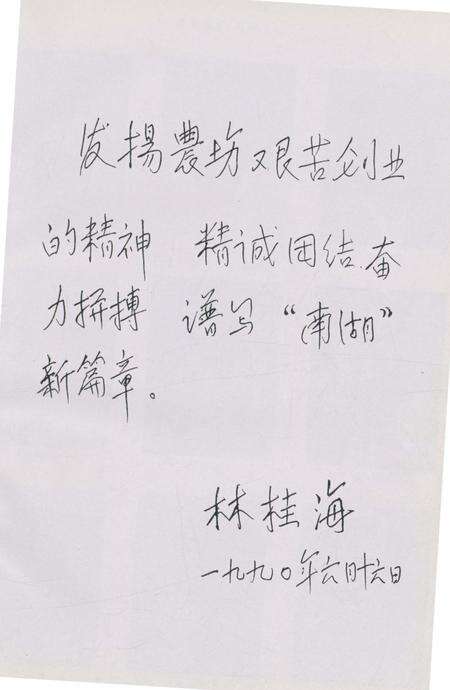 发揚農垦艰苦创业
的精神 精诚团结.奋
力拼搏 谱写“南湖”
新篇章。
林桂海
一九九〇年六月十六日